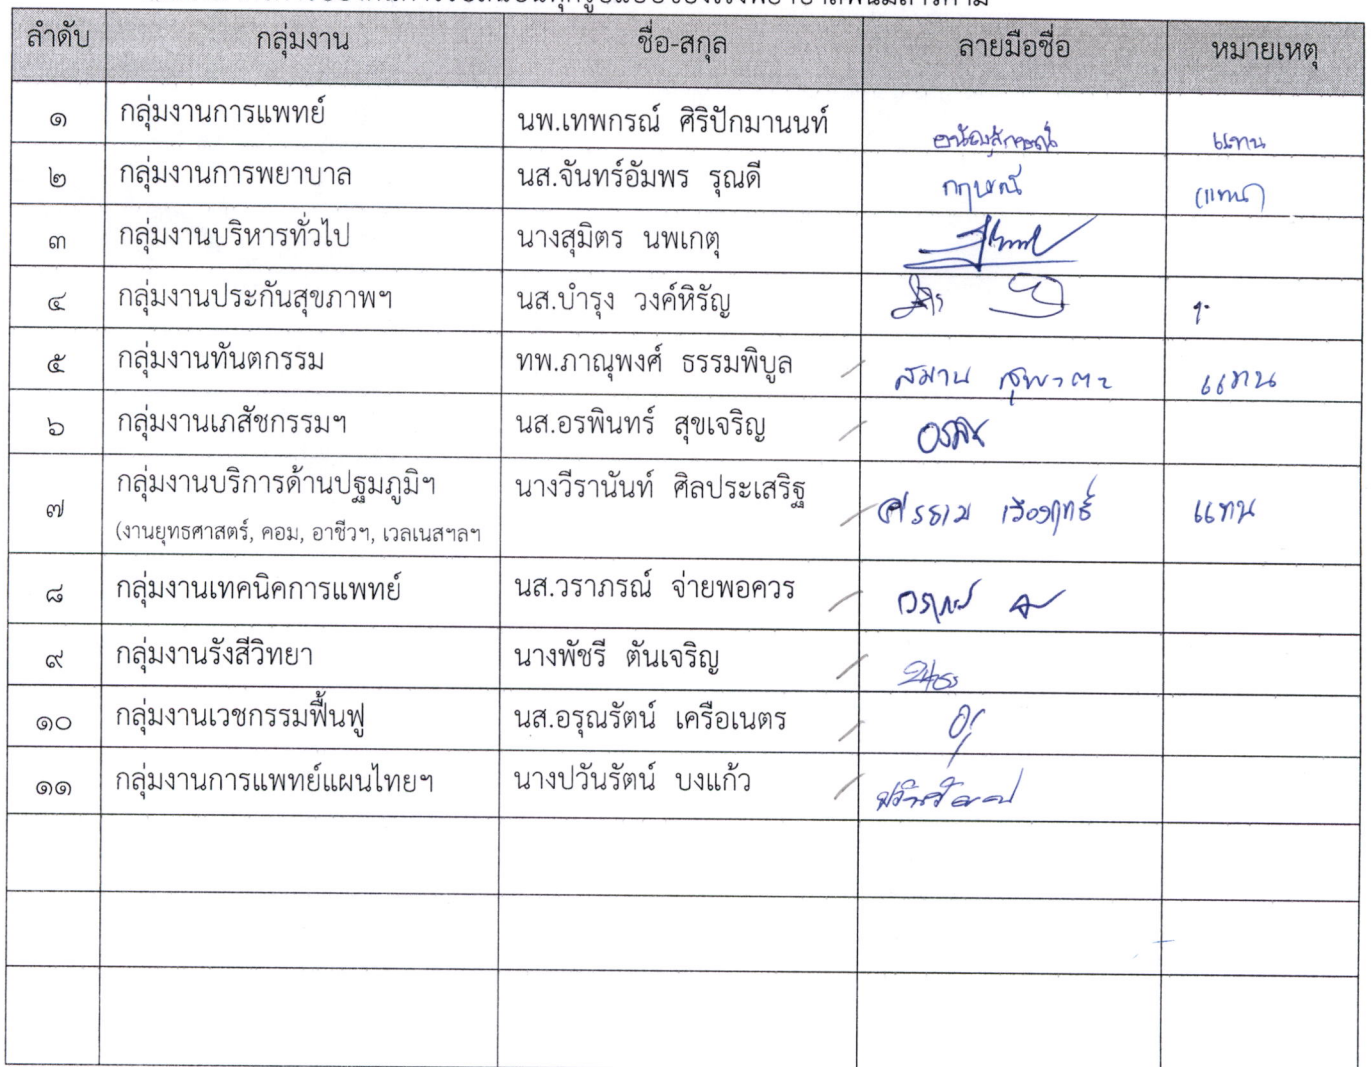 ลำดับ กลุ่มงาน ชื่อ-สกุล ลายมือชื่อ หมายเหตุ
๑ กลุ่มงานการแพทย์ นพ.เทพกรณ์ ศิริปักมานนท์ แทน
๒ กลุ่มงานการพยาบาล นส.จันทร์อัมพร รุณดี (แทน)
๓ กลุ่มงานบริหารทั่วไป นางสุมิตร นพเกตุ
๔ กลุ่มงานประกันสุขภาพฯ นส.บำรุง วงค์หิรัญ
๕ กลุ่มงานทันตกรรม ทพ.ภาณุพงศ์ ธรรมพิบูล สมาน แทน
๖ กลุ่มงานเภสัชกรรมฯ นส.อรพินทร์ สุขเจริญ
๗ กลุ่มงานบริการด้านปฐมภูมิฯ นางวีรานันท์ ศิลประเสริฐ แทน
(งานยุทธศาสตร์, คอม, อาชีวฯ, เวลเนสฯลฯ
๘ กลุ่มงานเทคนิคการแพทย์ นส.วราภรณ์ จ่ายพอควร
๙ กลุ่มงานรังสีวิทยา นางพัชรี ตันเจริญ
๑๐ กลุ่มงานเวชกรรมฟื้นฟู นส.อรุณรัตน์ เครือเนตร
๑๑ กลุ่มงานการแพทย์แผนไทยฯ นางปวันรัตน์ บงแก้ว